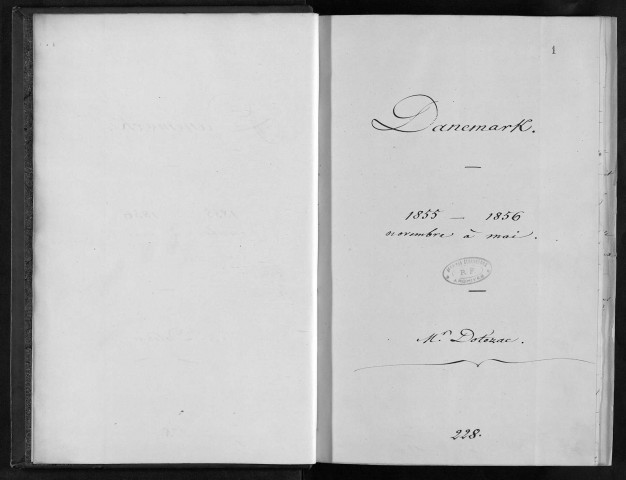 1
Danemark.
1855 — 1856
novembre à mai.
Mr. Dotézac.
228.